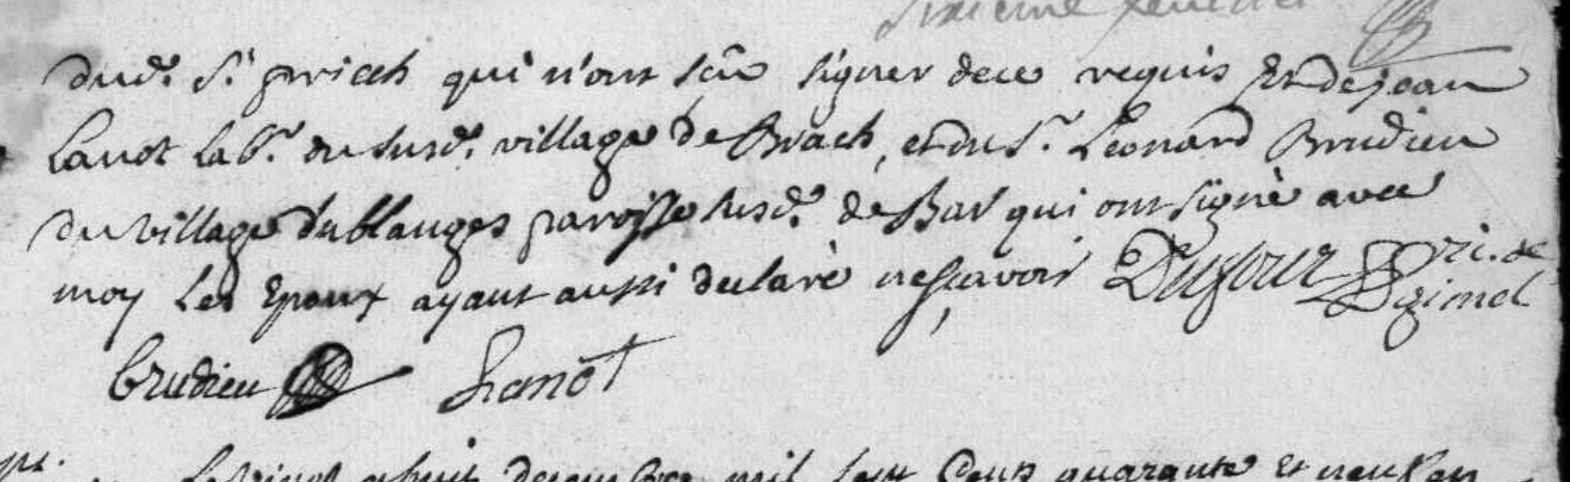 dud. St. priech qui n'ont scû signer de ce requis Et de jean
Lanot lab.r du susd. village de Brach, et du Sr. Leonard Brudieu
du village dublanges paroisse susd. de Bar qui ont signè avec
moy Les Epoux ayant aussi declarè ne scavoir Dufour
de gimel
Brudieu Lanot
mil sept Cent quarante Et neuf en